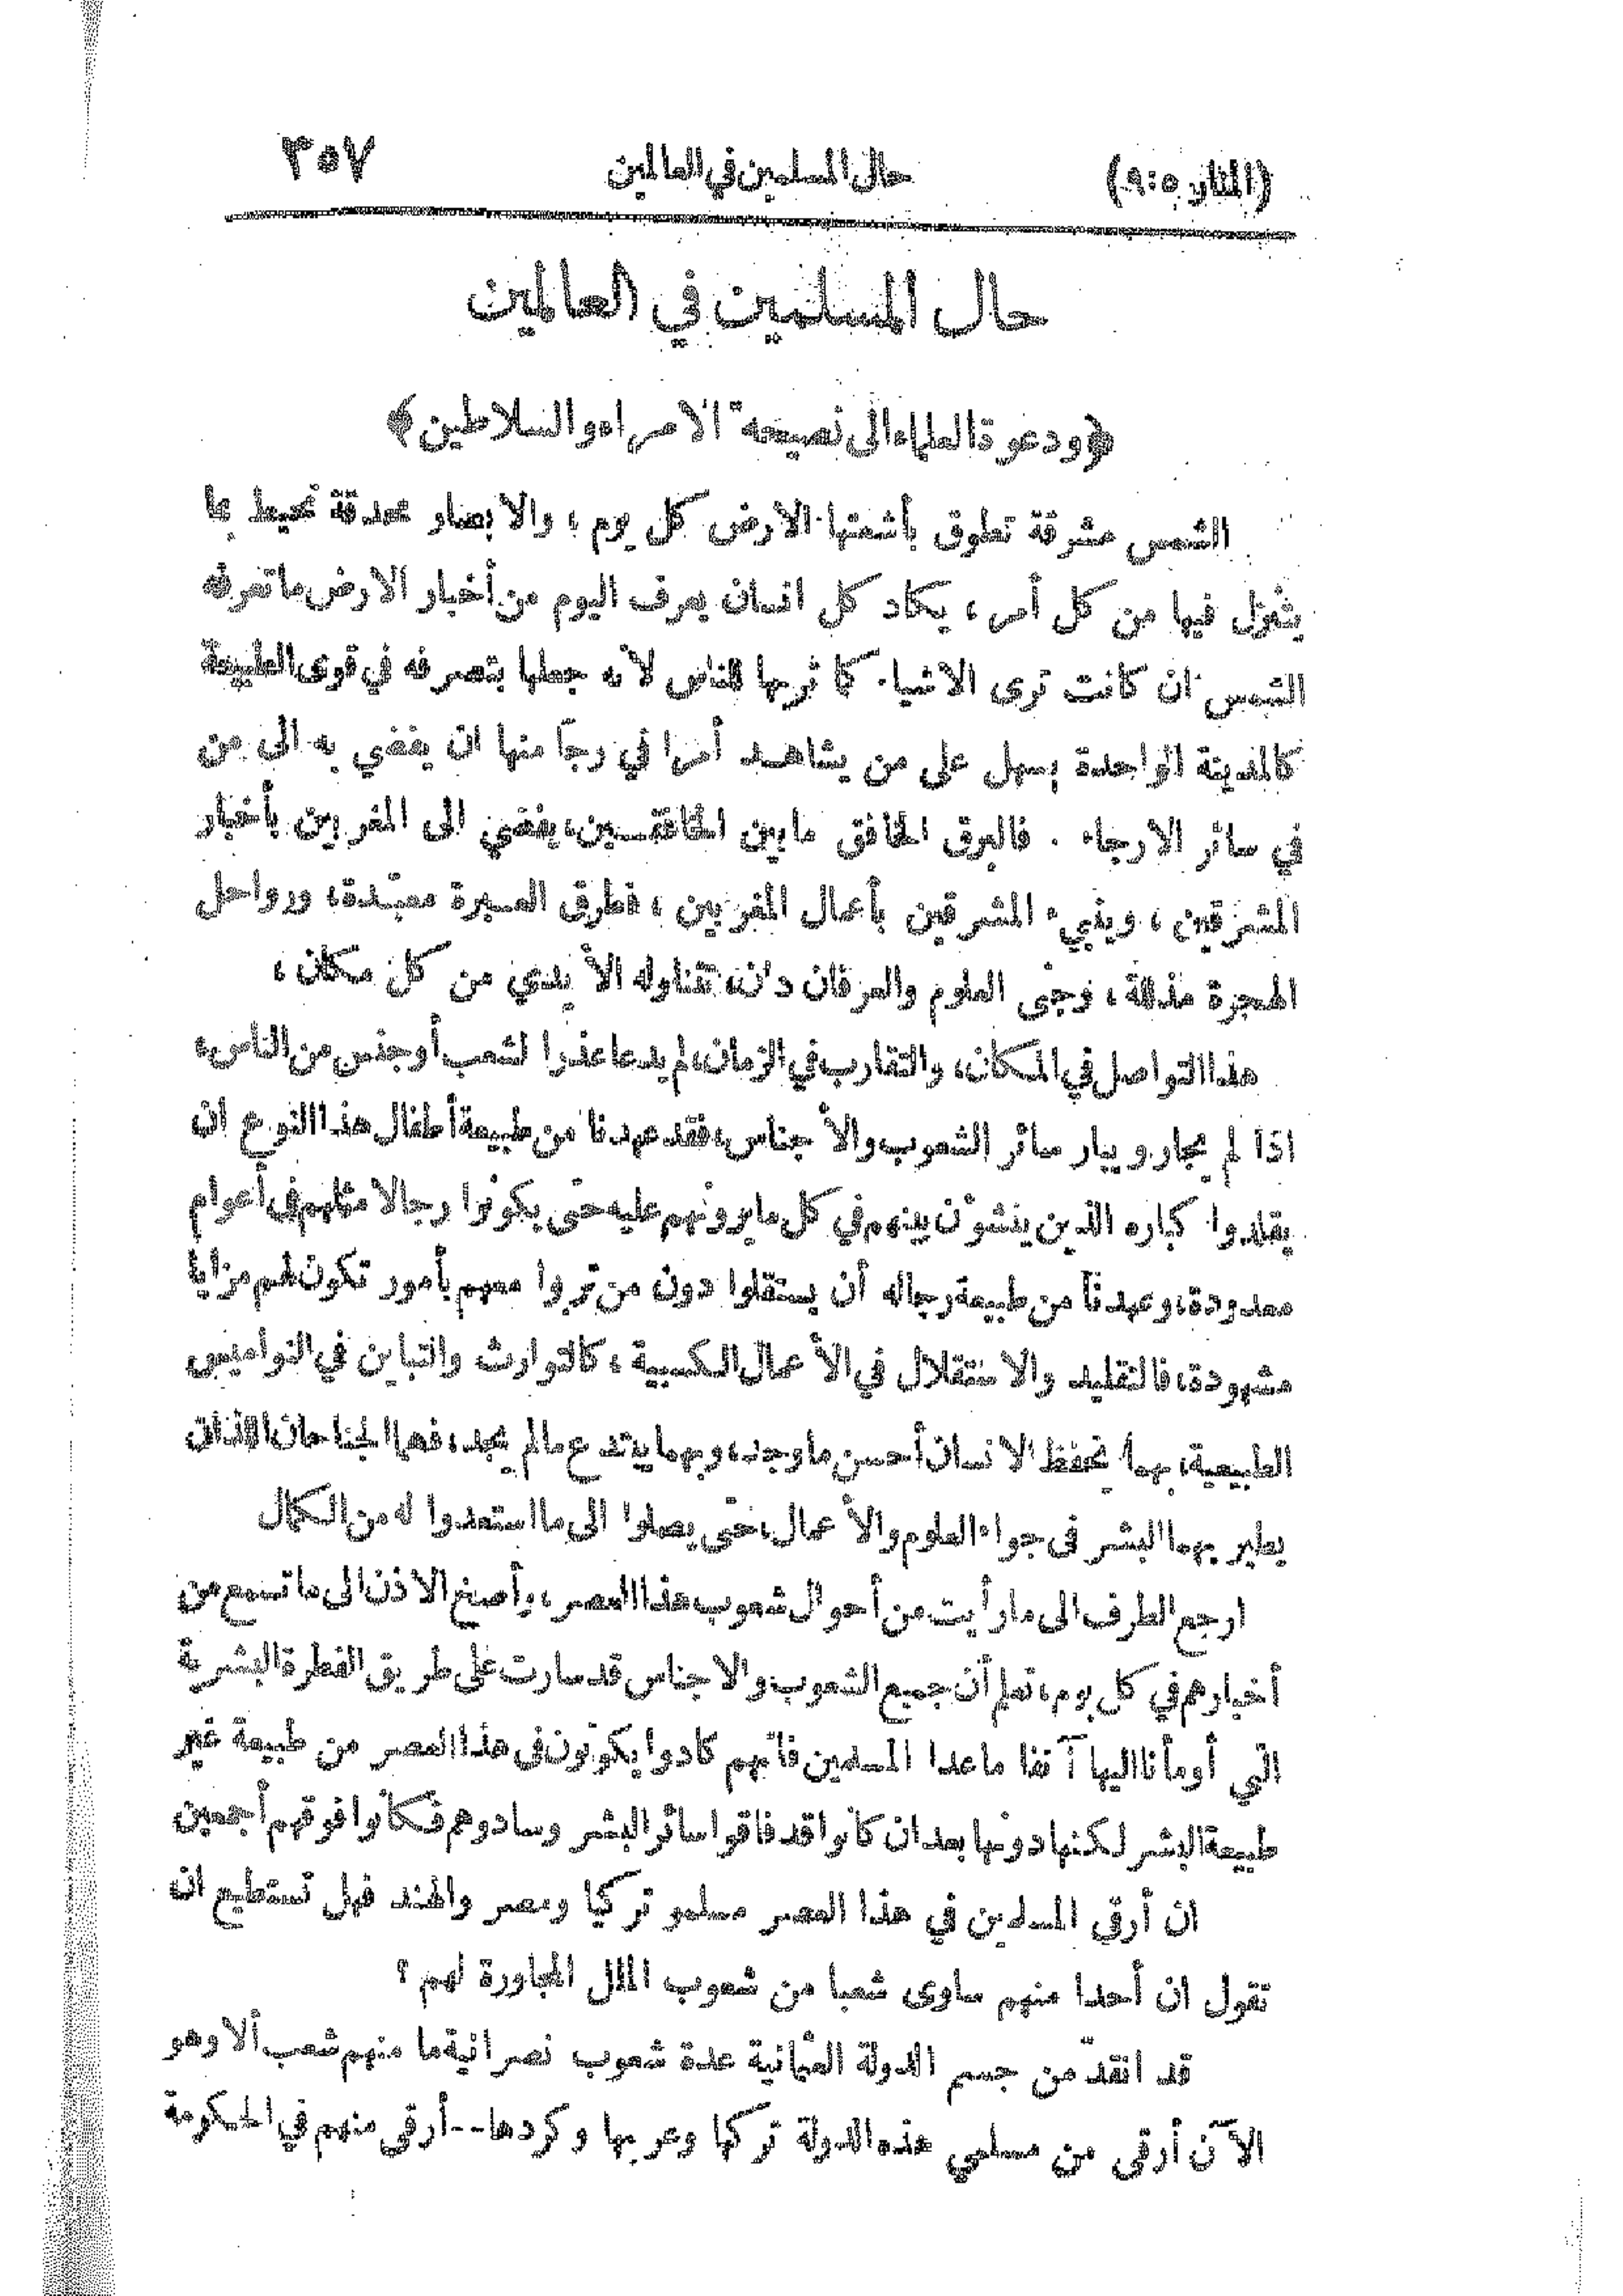 (المنار ٩:٥)
حال المسلمين في العالمين
٣٥٧
حال المسلمين في العالمين
﴿ ودعوة العلماء الى نصيحة الامراء والسلاطين ﴾
الشمس مشرقة تطوق بأشعتها الارض كل يوم ، والابصار محدقة تحيط بما
يتنزل فيها من كل أمر ، يكاد كل انسان يعرف اليوم من أخبار الارض ما تعرفه
الشمس ان كانت ترى الاشياء كما تربها للناس لانه جعلها بتصرفه في قوى الطبيعة
كالمدينة الواحدة يسهل على من يشاهد أمرا في رجا منها ان يفضي به الى من
في سائر الارجاء . فالبرق الخافق ما بين الخافقين ، يفضي الى المغربين بأخبار
المشرقين ، وينبيء المشرقين بأعمال المغربين ، فطرق العبرة معبّدة ، ورواحل
الهجرة مذللة ، وجنى العلوم والعرفان دان ، تتناوله الأيدي من كل مكان ،
هذا التواصل في المكان ، والتقارب في الزمان ، لم يدعا عذرا لشعب أو جنس من الناس ،
اذا لم يجار ويبار سائر الشعوب والأجناس ، فقد عهدنا من طبيعة أطفال هذا النوع ان
يقلدوا كباره الذين ينشؤن بينهم في كل ما يرونهم عليه حتى يكونوا رجالا مثلهم في أعوام
معدودة ، وعهدنا من طبيعة رجاله أن يستقلوا دون من تربوا معهم بأمور تكون لهم مزايا
مشهودة ، فالتقليد والاستقلال في الأعمال الكسبية ، كالتوارث والتباين في النواميس
الطبيعية ، بهما يحفظ الانسان أحسن ما وجد ، وبهما يبتدع ما لم يجد ، فهما الجناحان اللذان
يطير بهما البشر في جواء العلوم والأعمال ، حتى يصلوا الى ما استعدوا له من الكمال
ارجع الطرف الى ما رأيت من أحوال شعوب هذا العصر ، وأصغ الاذن الى ما تسمع من
أخبارهم في كل يوم ، تعلم أن جميع الشعوب والاجناس قد سارت على طريق الفطرة البشرية
التي أومأنا اليها آنفا ما عدا المسلمين فانهم كادوا يكونون في هذا العصر من طبيعة غير
طبيعة البشر لكنها دونها بعد ان كانوا قد فاقوا سائر البشر وسادوهم فكانوا فوقهم أجمعين
ان أرقى المسلمين في هذا العصر مسلمو تركيا ومصر والهند فهل تستطيع ان
تقول ان أحدا منهم ساوى شعبا من شعوب الملل المجاورة لهم ؟
قد انقدّ من جسم الدولة العثمانية عدة شعوب نصرانية ما منهم شعب ألا وهو
الآن أرقى من مسلمي هذه الدولة تركها وعربها وكردها -- أرقى منهم في الحكومة